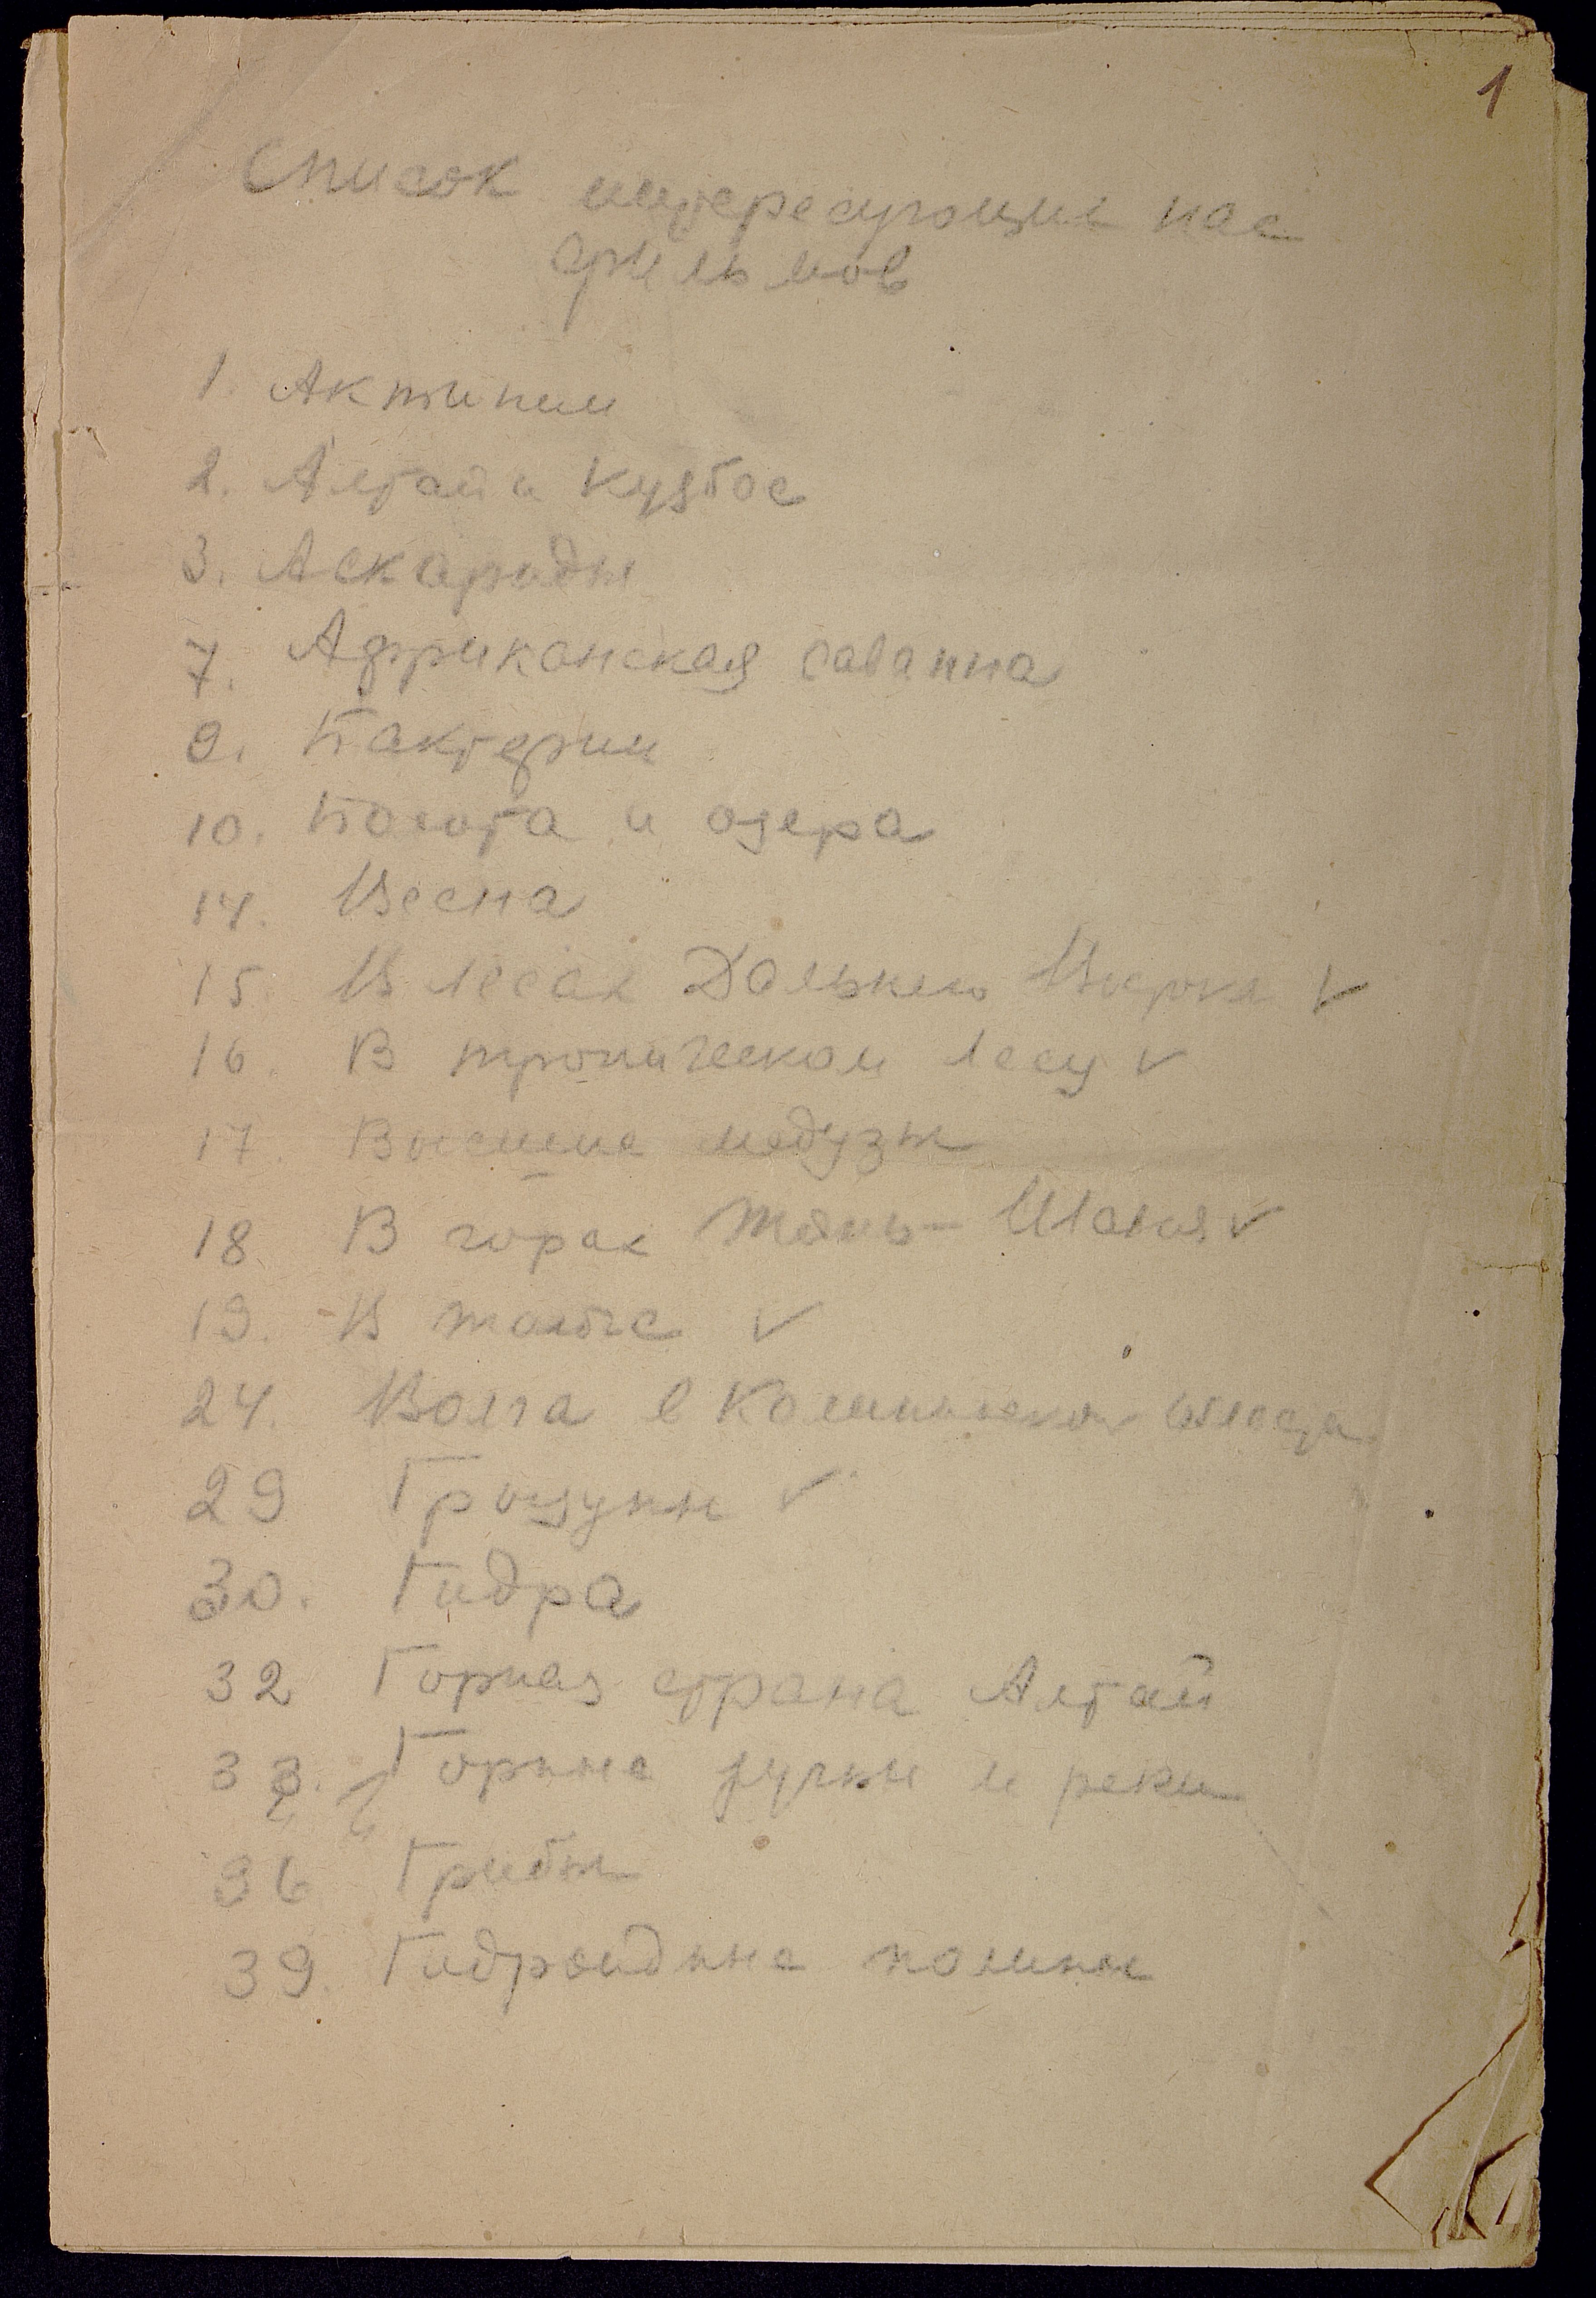 1
Список интересующих нас
фильмов
1. Актинии
2. Алтай и Кузбас
3. Аскариды
7. Африканская саванна
9. Бактерии
10. Болота и озера
14. Весна
15. В лесах Дальнего Востока ✓
16. В тропическом лесу ✓
17. Высшие медузы
18 В горах Тянь-Шаня ✓
19. В тайге ✓
24. Волга в Калининской области
29 Грызуны ✓
30. Гидра
32 Горная страна Алтай
33. Горные ручьи и реки
36 Грибы
39. Гидроидные полипы